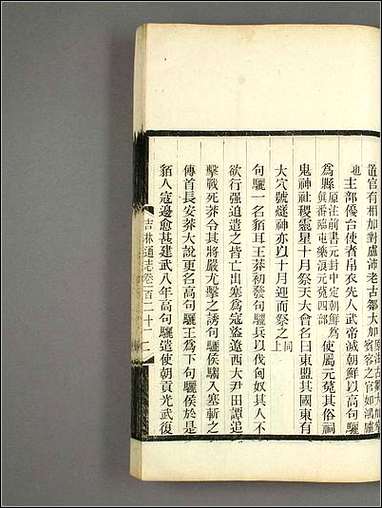 置官有相加對盧沛老古鄒大加
賓客之官如鴻臚
也 主部優台使者帛衣先人武帝滅朝鮮以高句驪
爲縣原注前書元封中定朝鮮爲
眞番臨屯樂浪元菟四部使屬元菟其俗祠
鬼神社稷靈星十月祭天大會名曰東盟其國東有
大穴號䆸神亦以十月迎而祭之同
上
句驪一名貊耳王莽初發句驪兵以伐匈奴其人不
欲行强迫遣之皆亡出塞爲寇盜遼西大尹田譚追
擊戰死莽令其將嚴尤擊之誘句驪侯騶入塞斬之
傳首長安莽大說更名高句驪王爲下句驪侯於是
貊人寇邊愈甚建武八年高句驪遣使朝貢光武復
吉林通志卷一百二十二 二